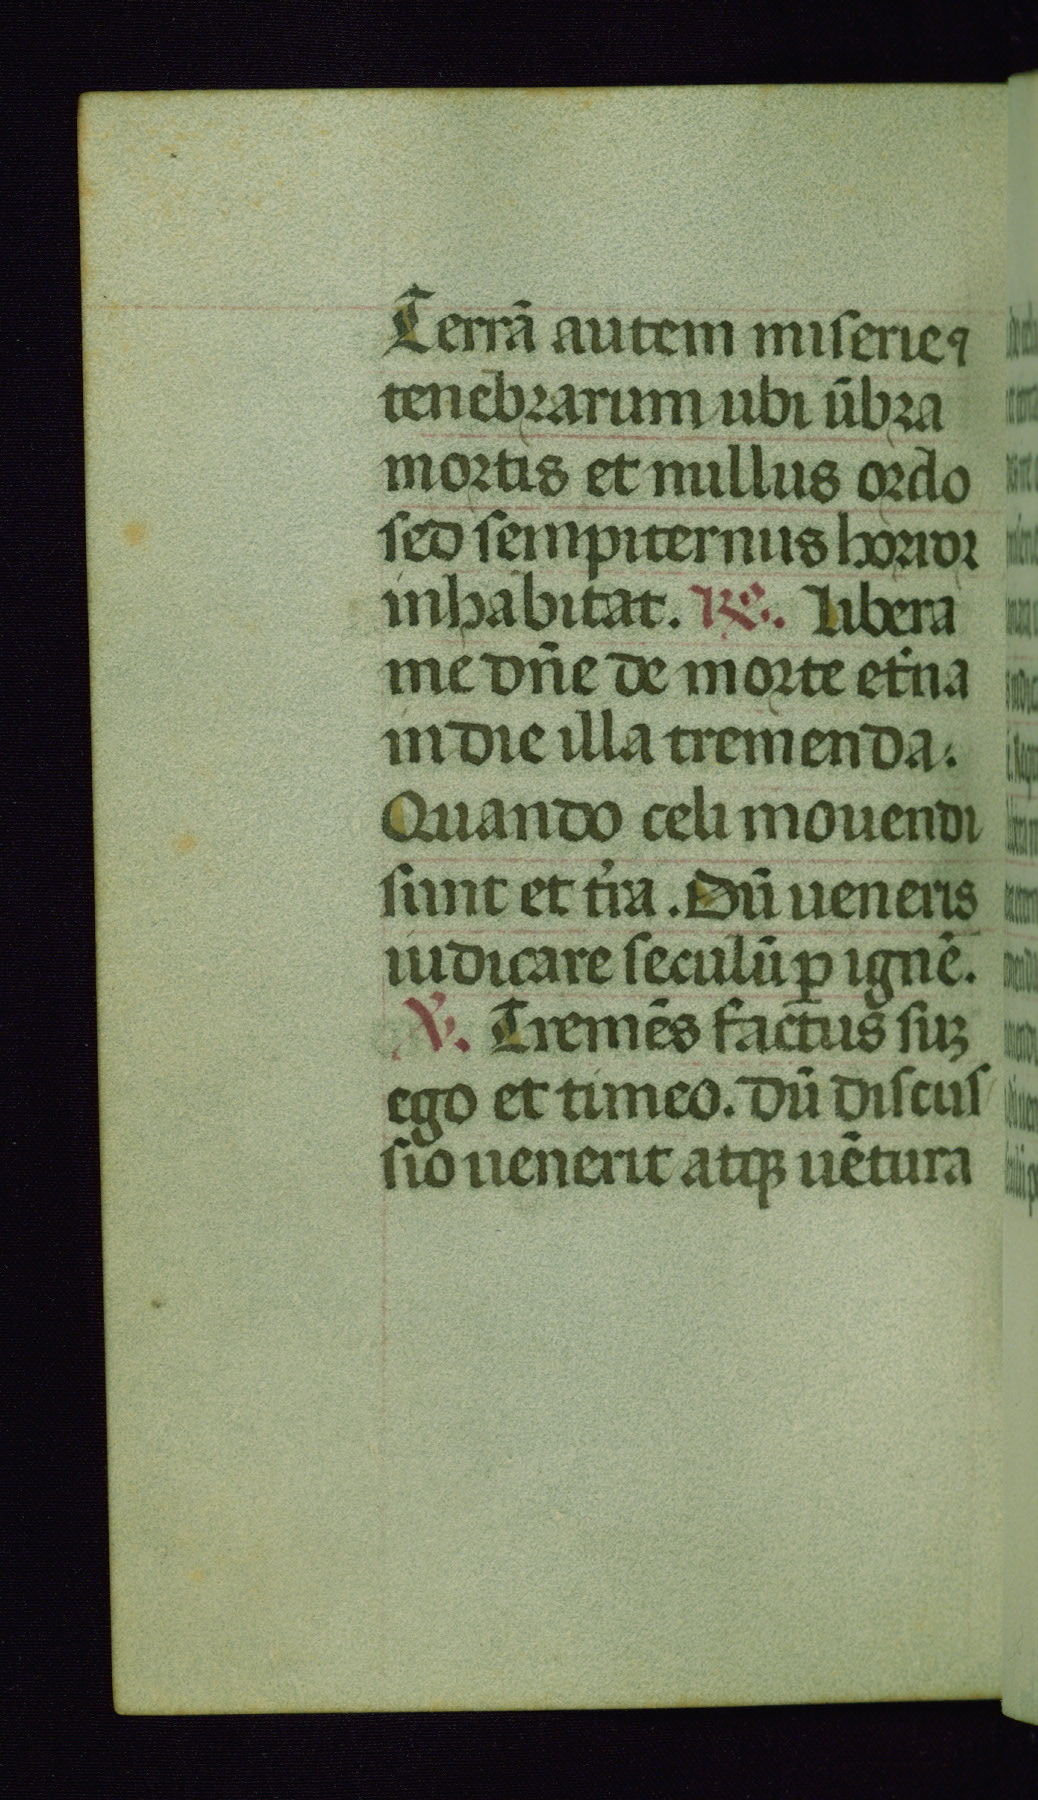 Terrã autem miserie ꝯ
tenebrarum ubi ũbra
mortis et nullus ordo
sed sempiternus horror
inhabitat. R̃. Libera
me dñe de morte et̃na
in die illa tremenda.
Quando celi mouendi
sunt et t̃ra. Dũ ueneris
iudicare seculũ ꝑ ignẽ.
V̷. Tremẽs factus suꝫ
ego et timeo. Dũ discus
sio uenerit atqꝫ uẽtura